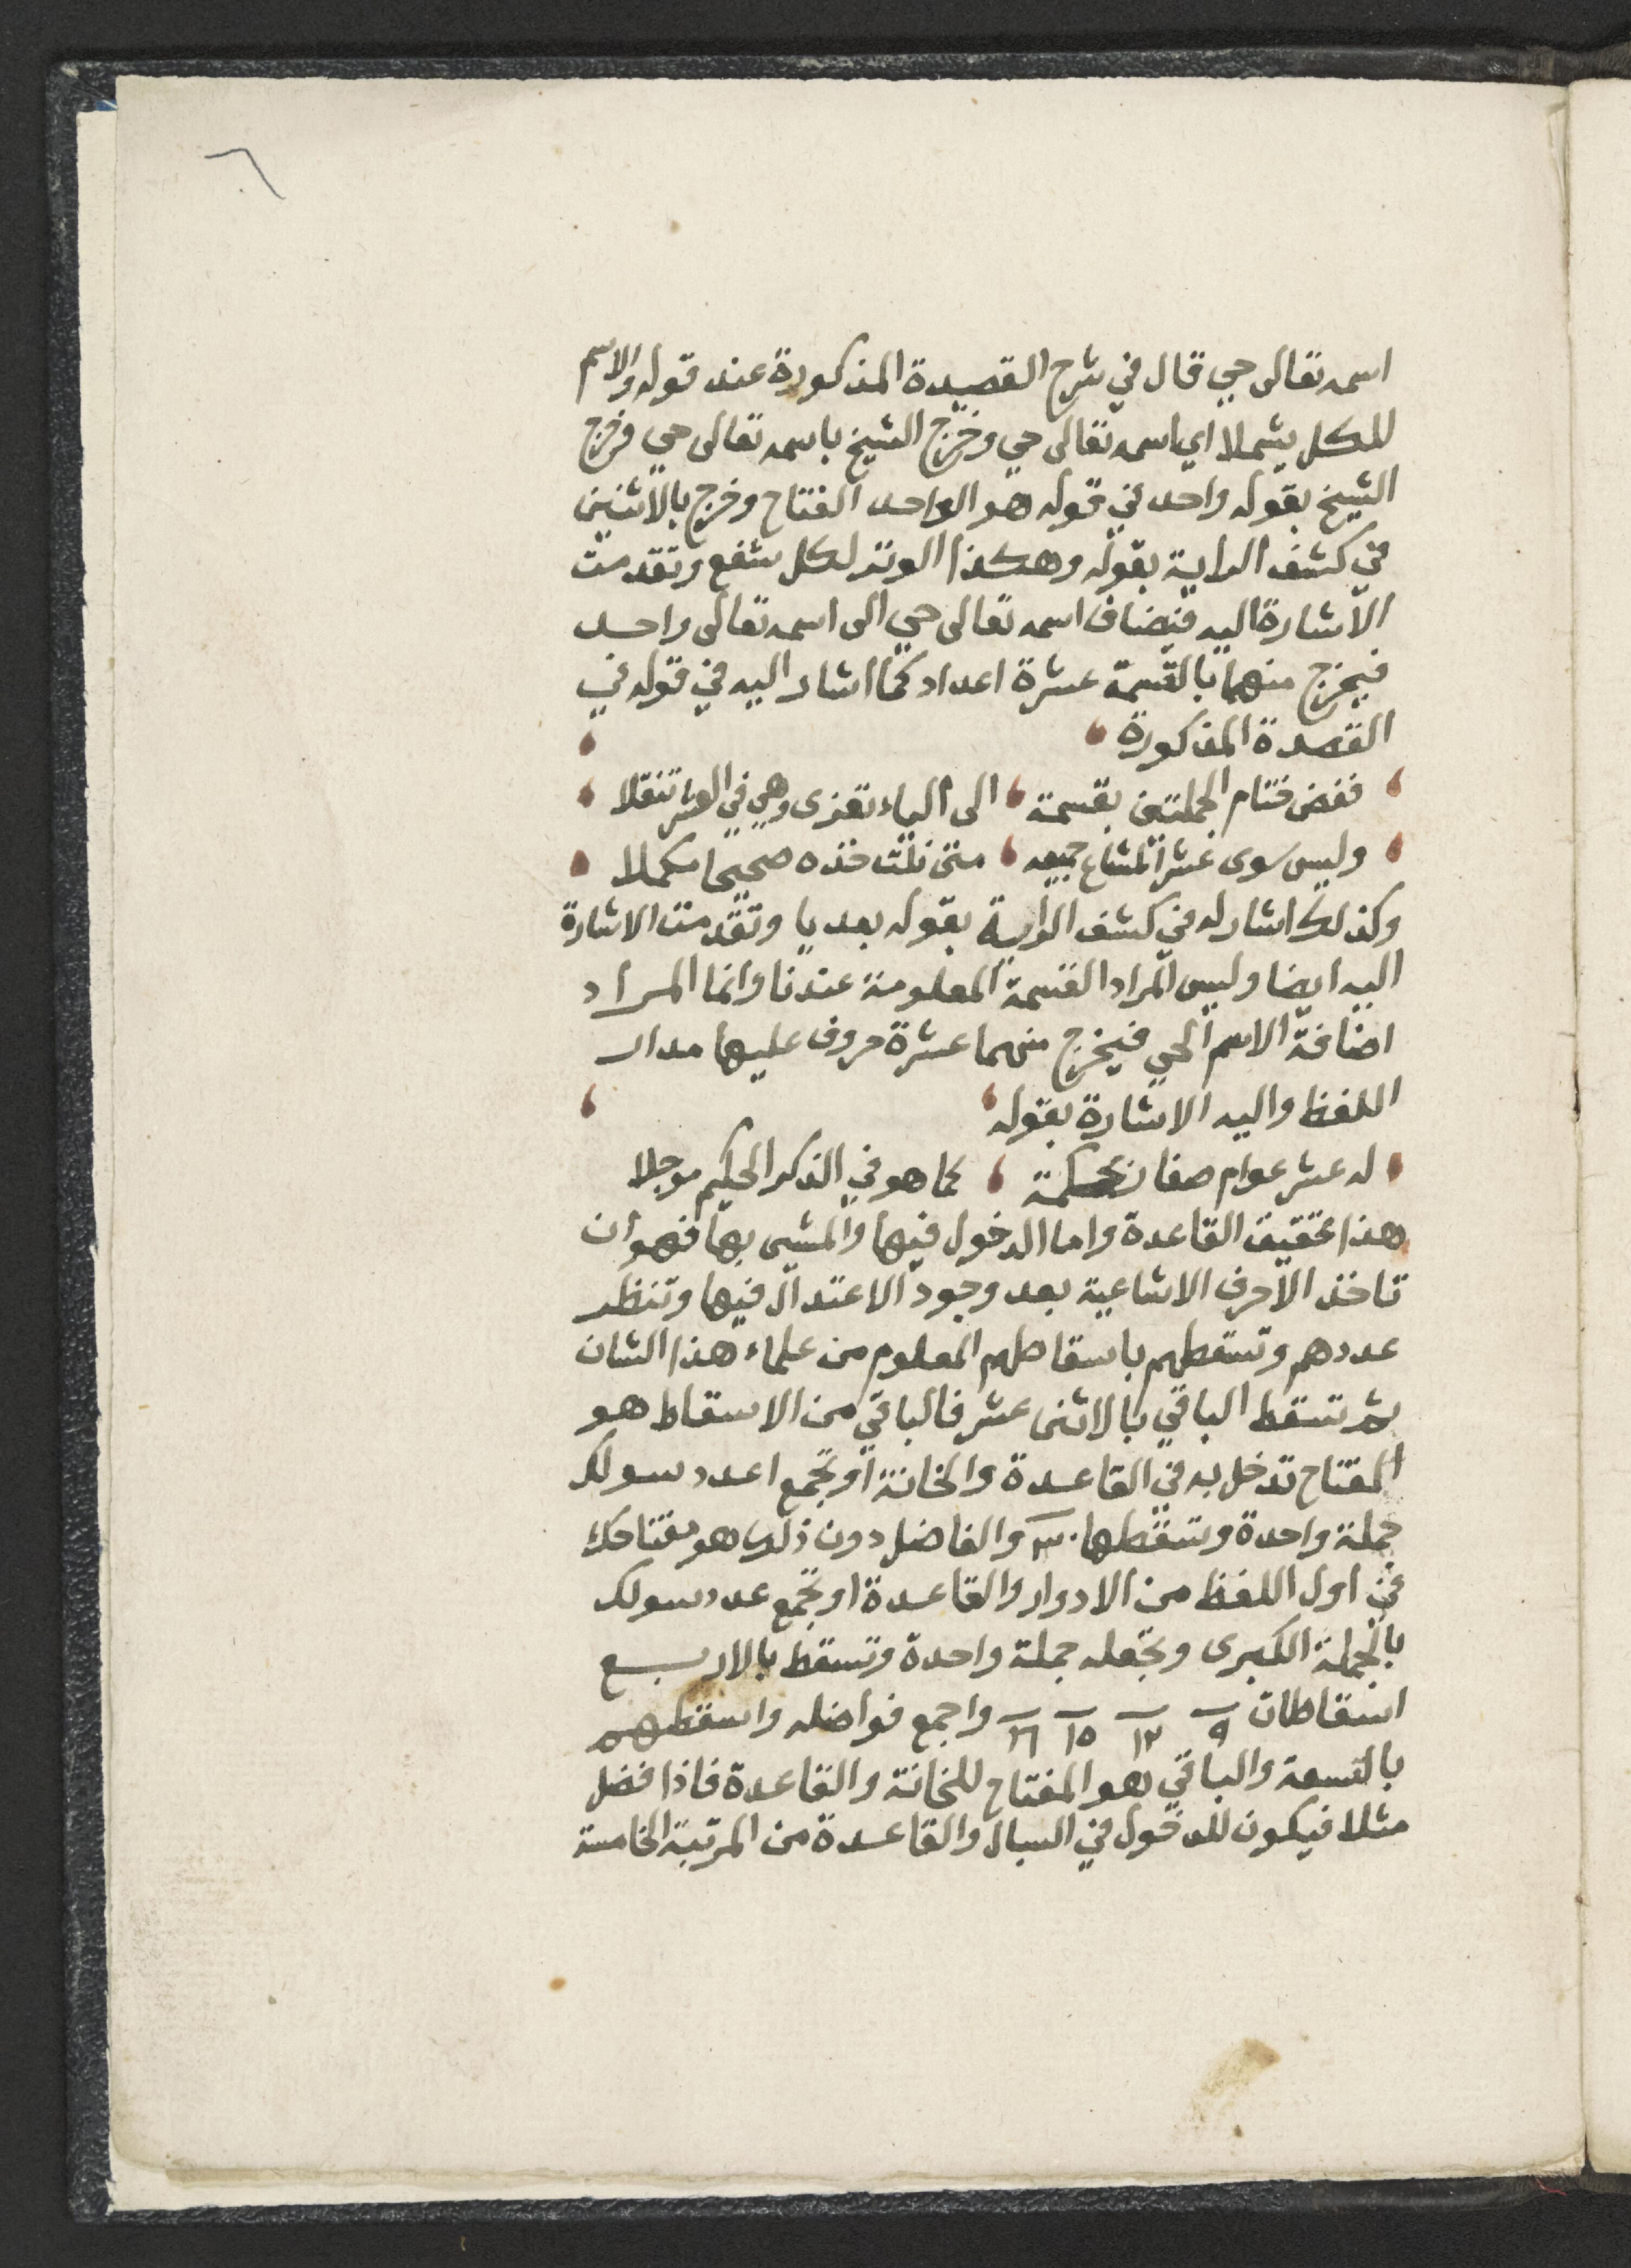 ٦
اسمه تعالى حي قال في شرح القصيدة المذكورة عند قوله والاسم
للكل يشملا اي اسمه تعالى حي وخرج الشيخ باسمه تعالى حي وخرج
الشيخ بقوله واحد في قوله هو الواحد الفتاح وخرج بالاثنين
في كشف الراية بقوله وهكذا الوتر لكل شفع وتقدمت
الاشارة اليه فيضاف اسمه تعالى حي الى اسمه تعالى واحد
فيخرج منهما بالقسمة عشرة اعداد كما اشار اليه في قوله في
القصدة المذكورة
ففض ختام الجملتين بقسمة الى الياء تعزى وهي في العشر تنقلا
وليس سوى عشر المشاع جميعه متى نلت خذه صحيحا مكملا
وكذلك اشار له في كشف الراية بقوله بعد يا وتقدمت الاشارة
اليه ايضا وليس المراد القسمة المعلومة عندنا وانما المراد
اضافة الاسم الحي فيخرج منهما عشرة حروف عليها مدار
اللفظ واليه الاشارة بقوله
له عشر عوام صفان بحكمة كما هو في الذكر الحكيم موجلا
هذا تحقيق القاعدة واما الدخول فيها والمشي بها فهو ان
تاخذ الاحرف الاشاعية بعد وجود الاعتدال فيها وتنظر
عددهم وتسقطهم باسقاطهم المعلوم من علماء هذا الشان
ثم تسقط الباقي بالاثنى عشر فالباقي من الاسقاط هو
المفتاح تدخل به في القاعدة والخانة او تجمع اعدد سولك
جملة واحدة وتسقطها والفاضل دون ذلك هو مفتاحك
في اول اللفظ من الادوار والقاعدة او تجمع عدد سولك
بالجملة الكبرى وتجعله جملة واحدة وتسقط بالاربع
اسقاطات ٩ ١٢ ١٥ ١٦ واجمع فواضله واسقطهم
بالتسعة والباقي هو المفتاح للخانة والقاعدة فاذا فضل
مثلا فيكون للدخول في السبال والقاعدة من المرتبة الخامسة